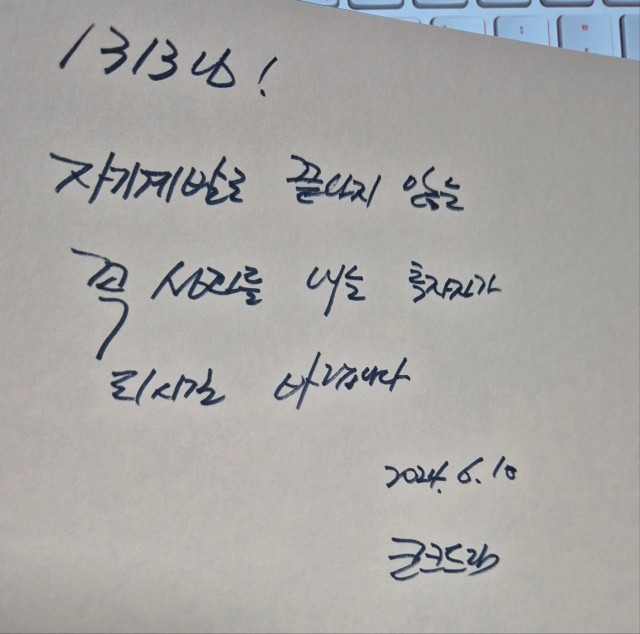 1313님!
자기계발로 끝나지 않는
꼭 성과를 내는 투자자가
되시길 바랍니다
2024. 6. 10